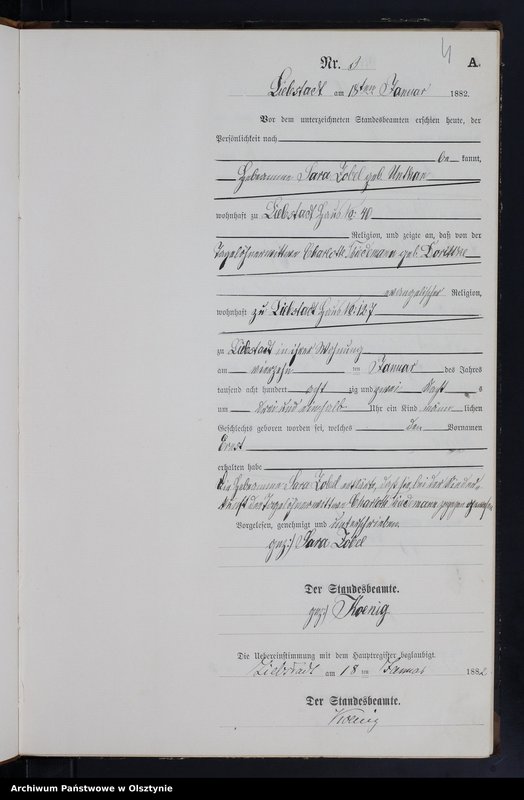 4
Nr. 3 A.
Liebstadt am 18ten Januar 1882.
Vor dem unterzeichneten Standesbeamten erschien heute, der
Persönlichkeit nach
be kannt,
Hebamme Sara Zobel geb.
wohnhaft zu Liebstadt Haus No: 40
Religion, und zeigte an, daß von der
Tagelöhnerwittwe Charlotte Thiedemann geb.
evangelischer Religion,
wohnhaft zu Liebstadt Haus No: 127
zu Liebstadt in ihrer Wohnung
am vierzehn ten Januar des Jahres
tausend acht hundert acht zig und zwei
um drei und einhalb Uhr ein Kind männ lichen
Geschlechts geboren worden sei, welches den Vornamen
Ernst
erhalten habe
Die Hebamme Sara Zobel erklärte, daß sie bei der Nieder-
kunft der Tagelöhnerwittwe Charlotte Thiedemann zugegen gewesen
Vorgelesen, genehmigt und unterschrieben
gez:) Sara Zobel
Der Standesbeamte.
gez:) Koenig
Die Uebereinstimmung mit dem Hauptregister beglaubigt.
Liebstadt am 18 ten Januar 1882
Der Standesbeamte.
Koenig
Archiwum Państwowe w Olsztynie